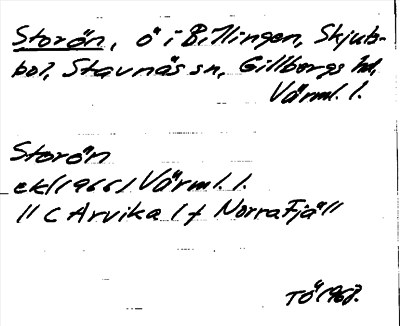 Storön, ö i Billingen, Skjuls-
bol, Stavnäs sn, Gillbergs hd,
Värml. l.
Storön
ek (1966) Värml. l.
11 C Arvika / f Norra Fjäll
TÖ 1968.